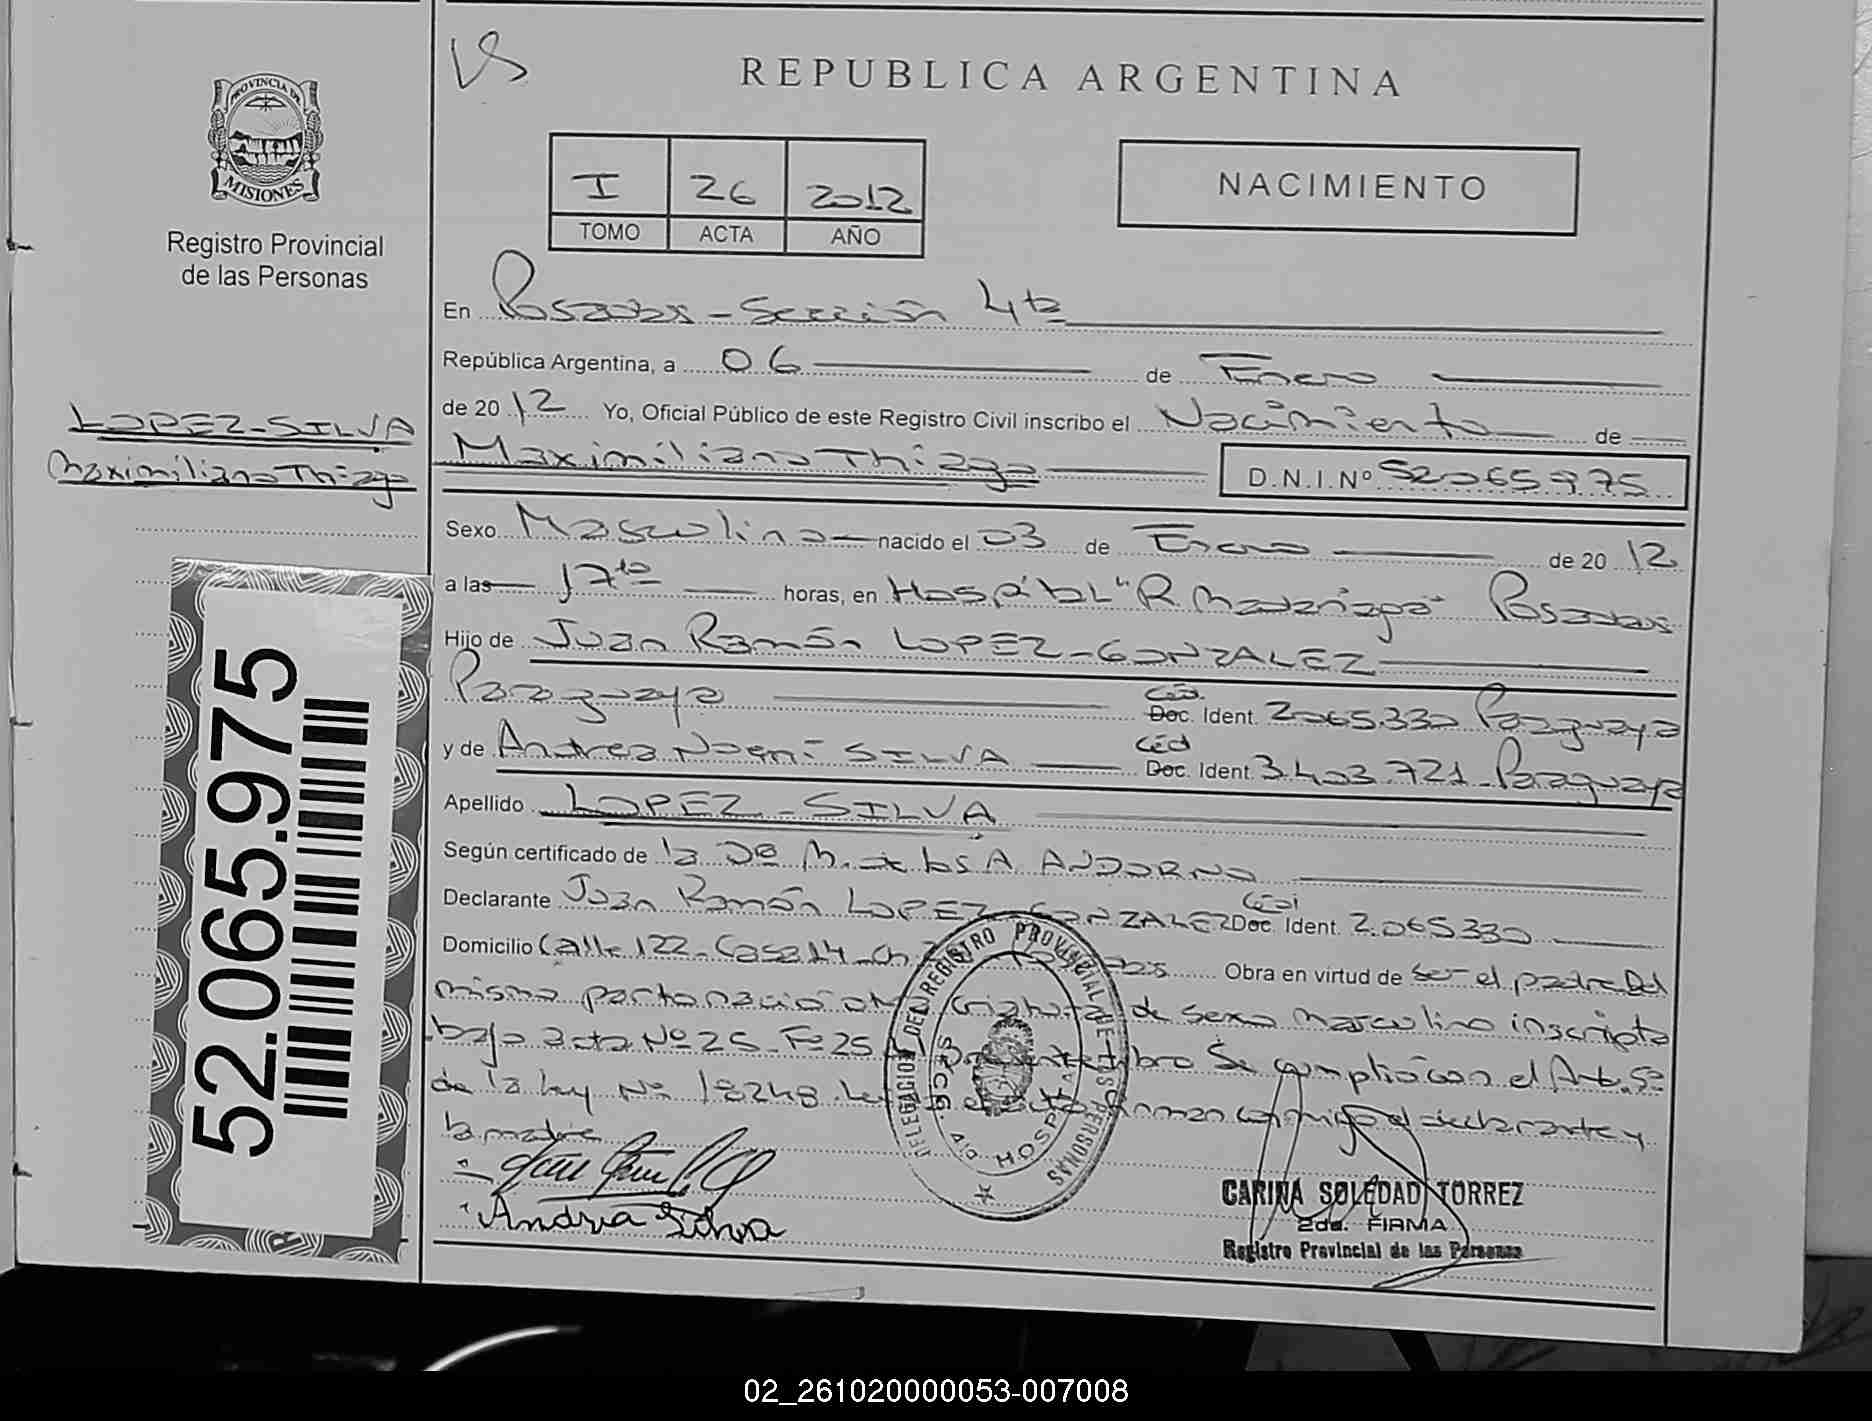 VS
PROVINCIA DE
MISIONES
Registro Provincial
de las Personas
REPUBLICA ARGENTINA
I 26 2012
TOMO ACTA AÑO
NACIMIENTO
En Posadas - Sección 4ta
República Argentina, a 06 de Enero
de 2012 Yo, Oficial Público de este Registro Civil inscribo el Nacimiento de
Maximiliano Thiago D.N.I.Nº 52065975
LOPEZ-SILVA
Maximiliano Thiago
Sexo Masculino nacido el 03 de Enero de 2012
a las 17 horas, en Hospital "R. Madariaga" Posadas
Hijo de Juan Ramón LOPEZ-GONZALEZ
Paraguaya Céd. Doc. Ident. 2065330 Paraguaya
y de Andrea Noemí SILVA Céd Doc. Ident. 3.403.721 - Paraguaya
Apellido LOPEZ - SILVA
Según certificado de la A. ANDORNO
Declarante Juan Ramón LOPEZ-GONZALEZ Doc. Ident. 2.065330
Domicilio Calle 122 - Casa 14 Obra en virtud de ser el padre Del
mismo parto nació de sexo masculino inscripto
bajo acta Nº 25 - Fº 25 Se cumplió con el Art. 5º
de la ley Nº 18248. conmigo el declarante y
la madre
Andrea Silva
DELEGACION DEL REGISTRO PROVINCIAL DE LAS PERSONAS
HOSPITAL
CARINA SOLEDAD TORREZ
2da. FIRMA
Registro Provincial de las Personas
52.065.975
02_261020000053-007008